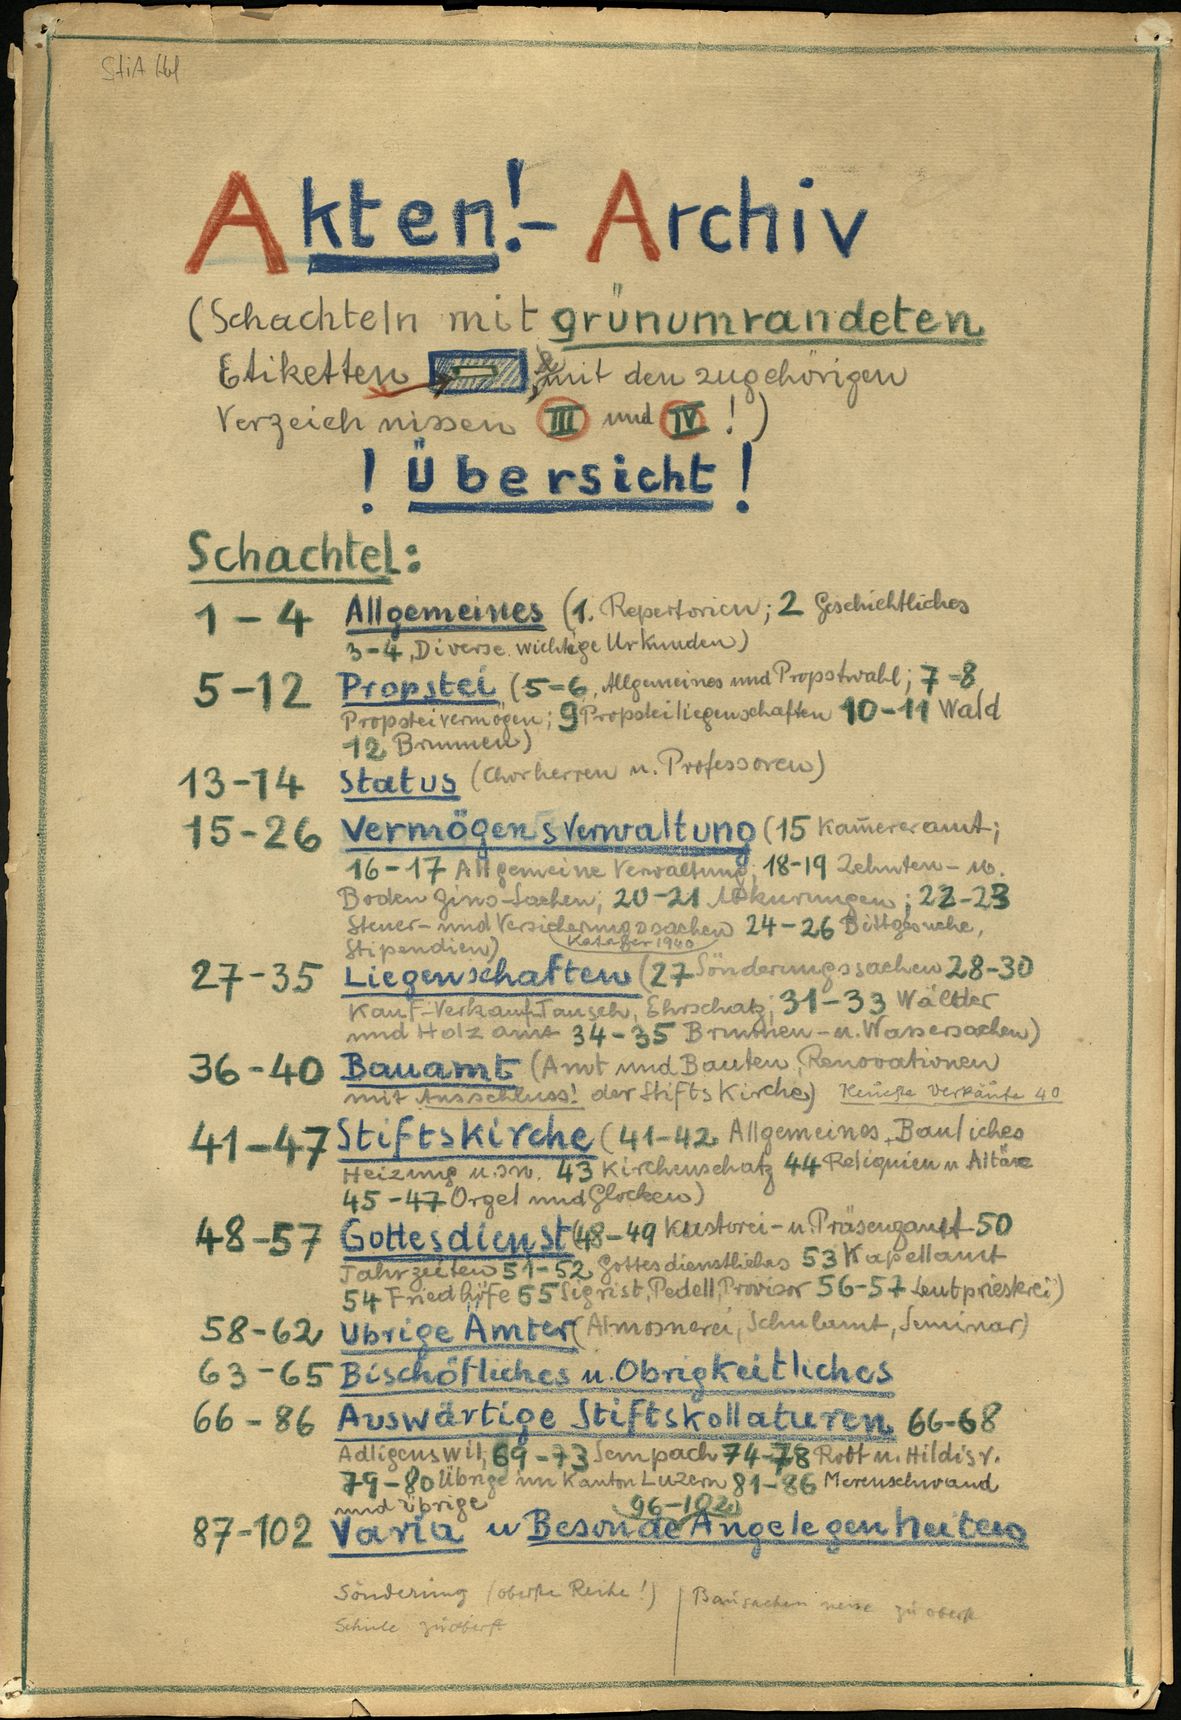 StiA
Akten!- Archiv
(Schachteln mit grünumrandeten
Etiketten mit den zugehörigen
Verzeichnissen III und IV !)
! Übersicht !
Schachtel:
1 - 4 Allgemeines (1. Repertorien; 2 Geschichtliches
3-4, Diverse wichtige Urkunden)
5-12 Propstei (5-6, Allgemeines und Propstwahl; 7-8
Propsteivermögen; 9 Propsteiliegenschaften 10-11 Wald
12 Brunnen)
13-14 Status (Chorherren u. Professoren)
15-26 Vermögensverwaltung (15 Kammereramt;
16-17 Allgemeine Verwaltung; 18-19 Zehnten- u.
Bodenzins-Sachen; 20-21 Abkurungen; 22-23
Steuer- und Versicherungssachen 24-26 Bittgesuche,
Stipendien) Kataster 1940
27-35 Liegenschaften (27 Sönderungssachen 28-30
Kauf-Verkauf-Tausch, Ehrschatz; 31-33 Wälder
und Holzamt 34-35 Brunnen- u. Wassersachen)
36-40 Bauamt (Amt und Bauten, Renovationen
mit Ausschluss! der Stiftskirche) Verkäufe 40
41-47 Stiftskirche (41-42 Allgemeines, Bauliches
Heizung u.sw. 43 Kirchenschatz 44 Reliquien u Altäre
45-47 Orgel und Glocken)
48-57 Gottesdienst (48-49 Kustorei- u. Präsenzamt 50
Jahrzeiten 51-52 Gottesdienstliches 53 Kapellamt
54 Friedhöfe 55 Sigrist, Pedell, Provisor 56-57 Leutpriesterei)
58-62 Übrige Ämter (Almosnerei, Schulamt, Seminar)
63-65 Bischöfliches u. Obrigkeitliches
66-86 Auswärtige Stiftskollaturen 66-68
Adligenswil, 69-73 Sempach 74-78 Root u. Hildisr.
79-80 Übrige im Kanton Luzern 81-86 Merenschwand
und übrige 96-102
87-102 Varia u Besonde Angelegenheiten
Sönderung (oberste Reihe!) Bausachen zu oberst
Schule zu oberst